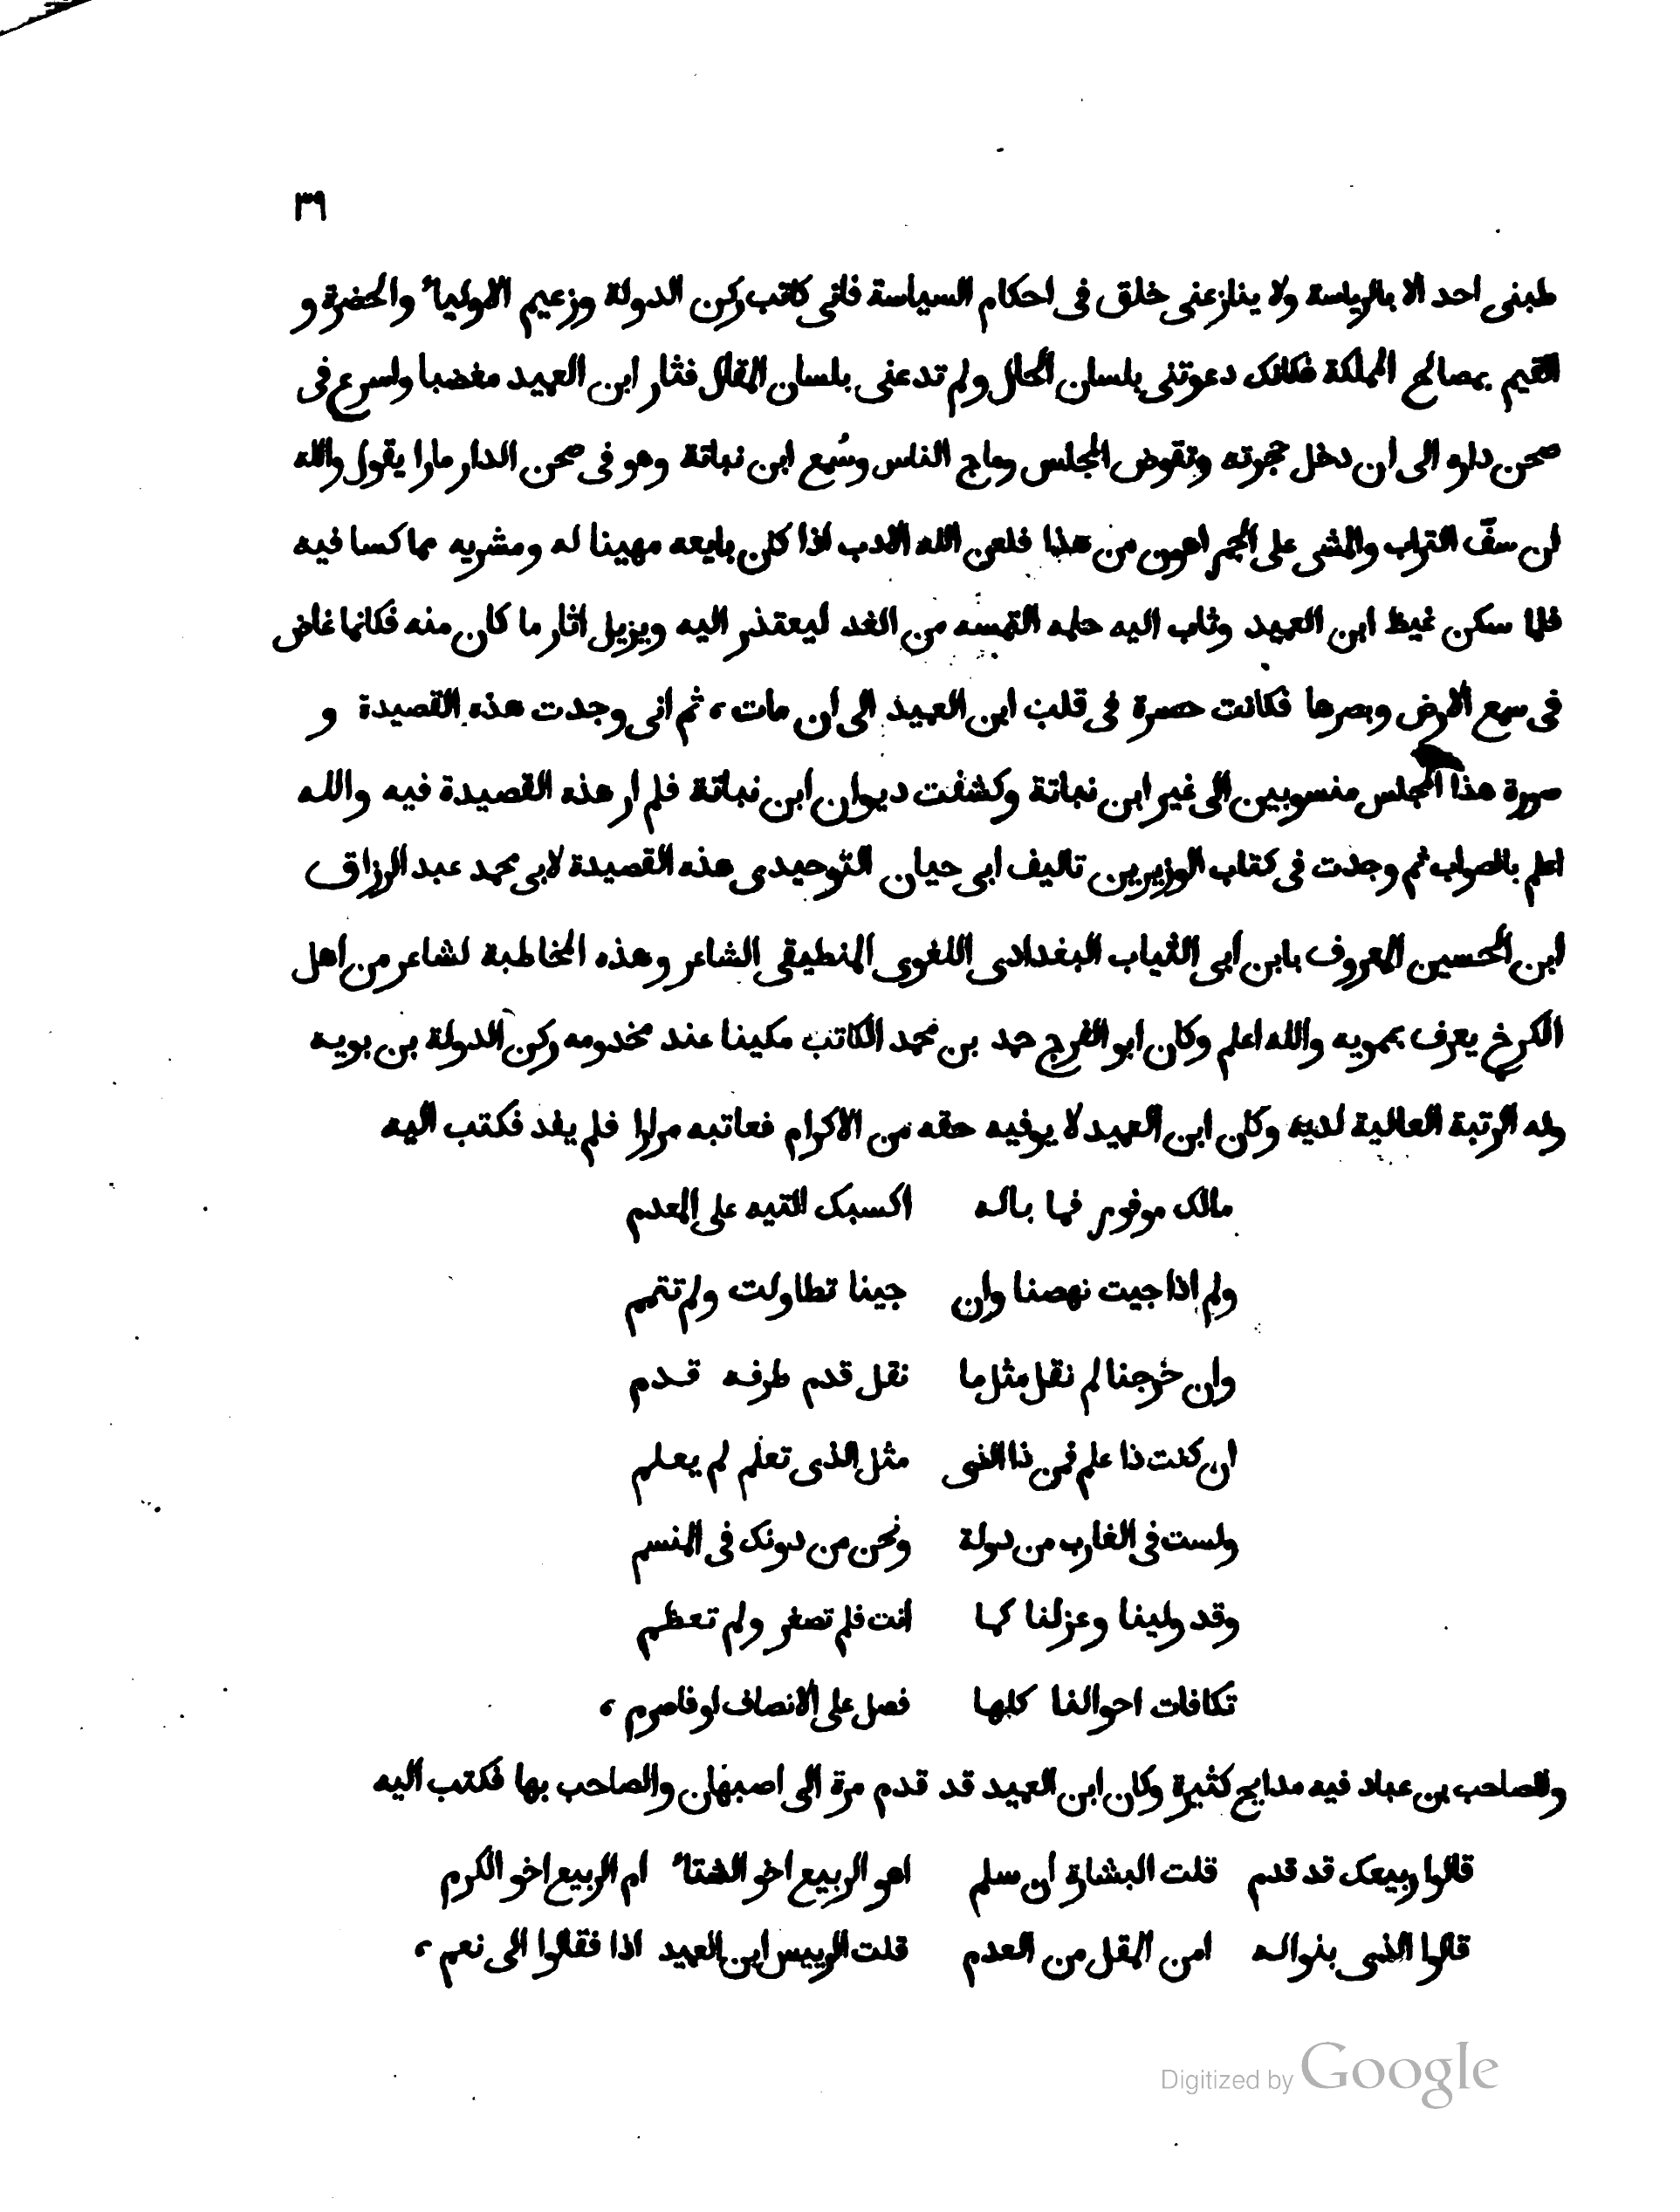 ٣٩
طبنى احد الا بالرياسة ولا ينازعنى خلق فى احكام السياسة فانى كاتب ركن الدولة وزعيم الاولياء والحضرة و
القيم بمصالح المملكة فكانك دعوتنى بلسان الحال ولم تدعنى بلسان المقال فثار ابن العميد مغضبا واسرع فى
صحن داره الى ان دخل حجرته وتقوض المجلس وماج الناس وسُمع ابن نباتة وهو فى صحن الدار مارا يقول والله
ان سفّ التراب والمشى على الجمر اهون من هذا فلعن الله الادب اذا كان بايعه مهينا له ومشريه مماكسا فيه
فلما سكن غيظ ابن العميد وثاب اليه حلمه التمسه من الغد ليعتذر اليه ويزيل اثار ما كان منه فكانما غاض
فى سمع الارض وبصرها فكانت حسرة فى قلب ابن العميد الى ان مات، ثم انى وجدت هذه القصيدة و
صورة هذا المجلس منسوبين الى غير ابن نباتة وكشفت ديوان ابن نباتة فلم ار هذه القصيدة فيه والله
اعلم بالصواب ثم وجدت فى كتاب الوزيرين تاليف ابى حيان التوحيدى هذه القصيدة لابى محمد عبد الرزاق
ابن الحسين المعروف بابن ابى الثياب البغدادى اللغوى المنطيقى الشاعر وهذه المخاطبة لشاعر من اهل
الكرخ يعرف بمويه والله اعلم وكان ابو الفرج حمد بن محمد الكاتب مكينا عند مخدومه ركن الدولة بن بويه
وله الرتبة العالية لديه وكان ابن العميد لا يوفيه حقه من الاكرام فعاتبه مرارا فلم يفد فكتب اليه
مالك موفور فما باله اكسبك التيه على المعدم
ولم اذا جيت نهضنا وان جينا تطاولت ولم تتمم
وان خرجنا لم نقل مثل ما نقل قدم طرفه قدم
ان كنت ذا علم فمن ذا الذى مثل الذى تعلم لم يعلم
ولست فى الغارب من دولة ونحن من دونك فى المنسم
وقد ولينا وعزلنا كما انت فلم تصغر ولم تعظم
تكافات احوالنا كلها فصل على الانصاف او فاصرم،
وللصاحب بن عباد فيه مدايح كثيرة وكان ابن العميد قد قدم مرة الى اصبهان والصاحب بها فكتب اليه
قالوا ربيعك قد قدم قلت البشارة ان سلم اهو الربيع اخو الشتاء ام الربيع اخو الكرم
قالوا الذى بنواله امن المقل من العدم قلت الرييس ابن العميد اذا فقالوا الى نعم،
Digitized by Google